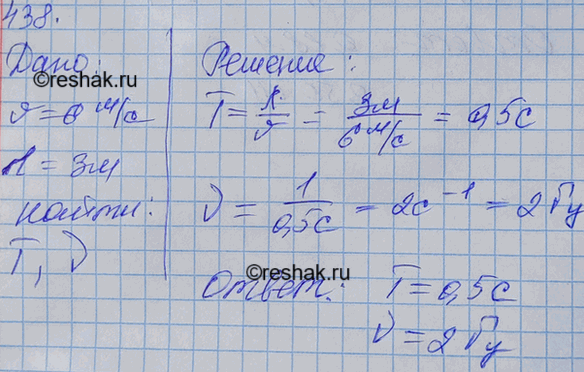 438.
Дано:
υ = 6 м/с
λ = 3м
найти:
T, ν
Решение:
T = λ/υ = 3м/6 м/с = 0,5с
ν = 1/0,5с = 2с⁻¹ = 2 Гц
Ответ: T = 0,5с
ν = 2 Гц
©reshak.ru
©reshak.ru